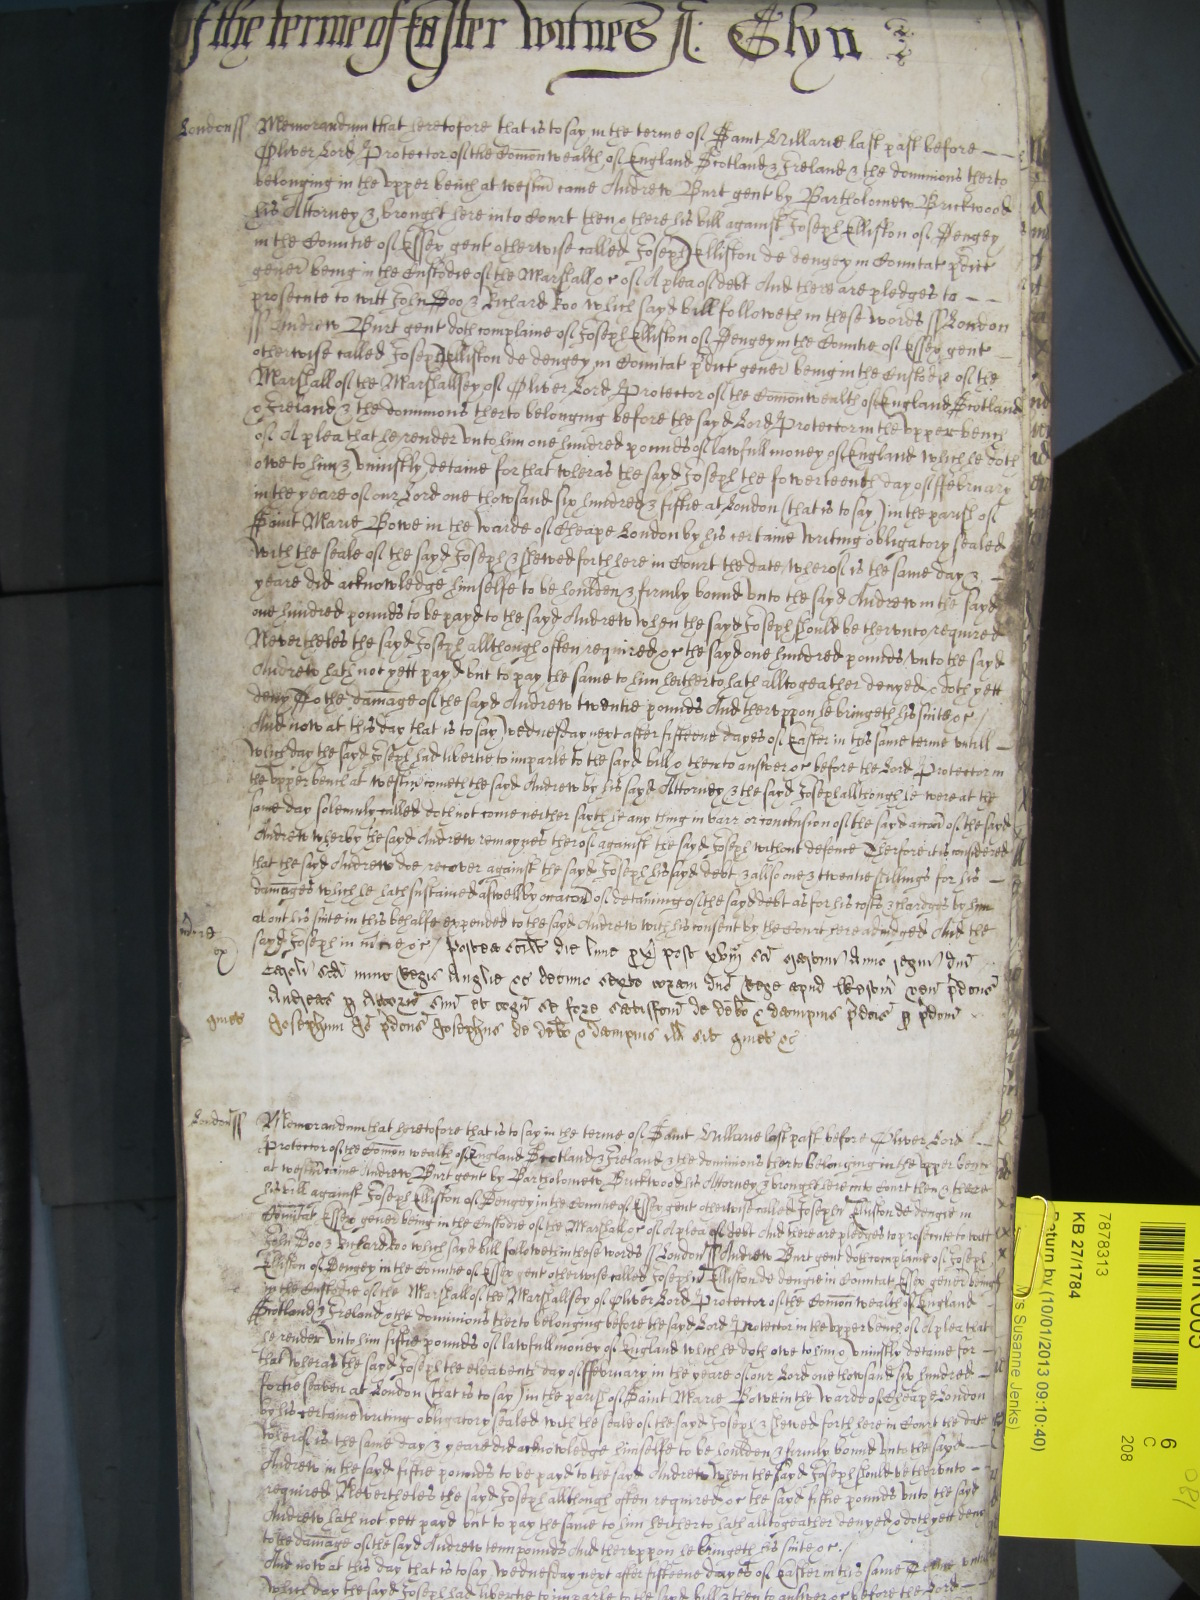 of the terme of Easter witnes J: Glyn
London ss Memorandum that heretofore that is to say in the terme of Saint Hillarie last past before
Oliver Lord Protector of the Comonwealth of England Scotland & Ireland & the dominions therto
belonging in the upper bench at westm came Andrew Burt gent by Bartholomew Brickwood
his Attorney & brought here into Court then & there his bill against Joseph Elliston of Dengey
in the Countie of Essex gent otherwise called Joseph Elliston de dengey in Comitat predict
gener being in the Custodie of the Marshall &c of A plea of debt And there are pledges to
prosecute to witt John Doo & Richard Roo which sayd bill followeth in these words ss London
ss Andrew Burt gent doth complaine of Joseph Elliston of Dengey in the Countie of Essex gent
otherwise called Joseph Elliston de dengey in Comitat predict gener being in the Custodie of the
Marshall of the Marshallsey of Oliver Lord Protector of the Comonwealth of England Scotland
& Ireland & the dominions therto belonging before the sayd Lord Protector in the upper bench
of A plea that he render unto him one hundred pounds of lawfull money of England which he doth
owe to him & uniustly detaine for that wheras the sayd Joseph the fowerteenth day of ffebruary
in the yeare of our Lord one thowsand six hundred & fiftie at London (that is to say) in the parish of
Saint Marie Bowe in the warde of Cheape London by his certaine writing obligatory sealed
with the seale of the sayd Joseph & shewed forth here in Court the date wherof is the same day &
yeare did acknowledge himselfe to be houlden & firmly bound unto the sayd Andrew in the sayd
one hundred pounds to be payd to the sayd Andrew when the sayd Joseph should be therunto required
Nevertheles the sayd Joseph allthough often required &c the sayd one hundred pounds unto the sayd
Andrew hath not yett payd but to pay the same to him hitherto hath alltogeather denyed & doth yett
deny To the damage of the sayd Andrew twentie pounds And theruppon he bringeth his suite &c
And now at this day that is to say wednesday next after fifteene dayes of Easter in this same terme untill
which day the sayd Joseph had libertie to imparle to the sayd bill & then to answer &c before the Lord Protector in
the upper bench at westm cometh the sayd Andrew by his sayd Attorney & the sayd Joseph allthough he were at the
same day solemnly called doth not come neither sayth he any thing in barr or conclusion of the sayd accon of the sayd
Andrew wherby the sayd Andrew remaynes therof against the sayd Joseph without defence Therfore it is considered
that the sayd Andrew doe recover against the sayd Joseph his sayd debt & allso one & twentie shillings for his
damages which he hath sustained aswell by occacon of detaining of the sayd debt as for his costs & chardges by him
about his suite in this behalfe expended to the sayd Andrew with his consent by the Court here adiudged And the
sayd Joseph in mercie &c Postea scilt die lune
Caroli scdi nunc Regis Anglie &c decimo sexto coram dno Rege apud Westm ven pdcus
Andreas p Attorn suu et cogn se fore satisfcm de debo & dampnis pdcis p pdcm
quiet Josephum Io pdcus Josephus de debo & dampnis ill sit quiet &c
London ss Memorandum that heretofore that is to say in the terme of Saint Hillarie last past before Oliver Lord
Protector of the Comonwealth of England Scotland & Ireland & the dominions therto belonging in the upper bench
at westm came Andrew Burt gent by Bartholomew Brickwood his Attorney & brought here into Court then & there
his bill against Joseph Elliston of Dengey in the Countie of Essex gent otherwise called Joseph Elliston de dengie in
Comitat Essex gener being in the Custodie of the Marshall &c of A plea of debt And there are pledges to prosecute to witt
John Doo & Richard Roo which sayd bill followeth in these words ss London ss Andrew Burt gent doth complaine of Joseph
Elliston of Dengey in the Countie of Essex gent otherwise called Joseph Elliston de dengie in Comitat Essex gener being
in the Custodie of the Marshall of the Marshallsey of Oliver Lord Protector of the Comonwealth of England
Scotland & Ireland & the dominions therto belonging before the sayd Lord Protector in the upper bench of A plea that
he render unto him fiftie pounds of lawfull money of England which he doth owe to him & uniustly detaine for
that wheras the sayd Joseph the eleaventh day of ffebruary in the yeare of our Lord one thowsand six hundred
fortie seaven at London (that is to say) in the parish of Saint Marie Bowe in the warde of Cheape London
by his certaine writing obligatory sealed with the seale of the sayd Joseph & shewed forth here in Court the date
wherof is the same day & yeare did acknowledge himselfe to be houlden & firmly bound unto the sayd
Andrew in the sayd fiftie pounds to be payd to the sayd Andrew when the sayd Joseph should be therunto
required Nevertheles the sayd Joseph allthough often required &c the sayd fiftie pounds unto the sayd
Andrew hath not yett payd but to pay the same to him hitherto hath alltogeather denyed & doth yett deny
to the damage of the sayd Andrew tenn pounds And theruppon he bringeth his suite &c
And now at this day that is to say Wednesday next after fifteene dayes of Easter in this same Terme untill
which day the sayd Joseph had libertie to imparle to the sayd bill & then to answer &c before the Lord
7878313
KB 27/1784
Return by (10/01/2013 09:10:40)
Ms Susanne Jenks)
6
C
208